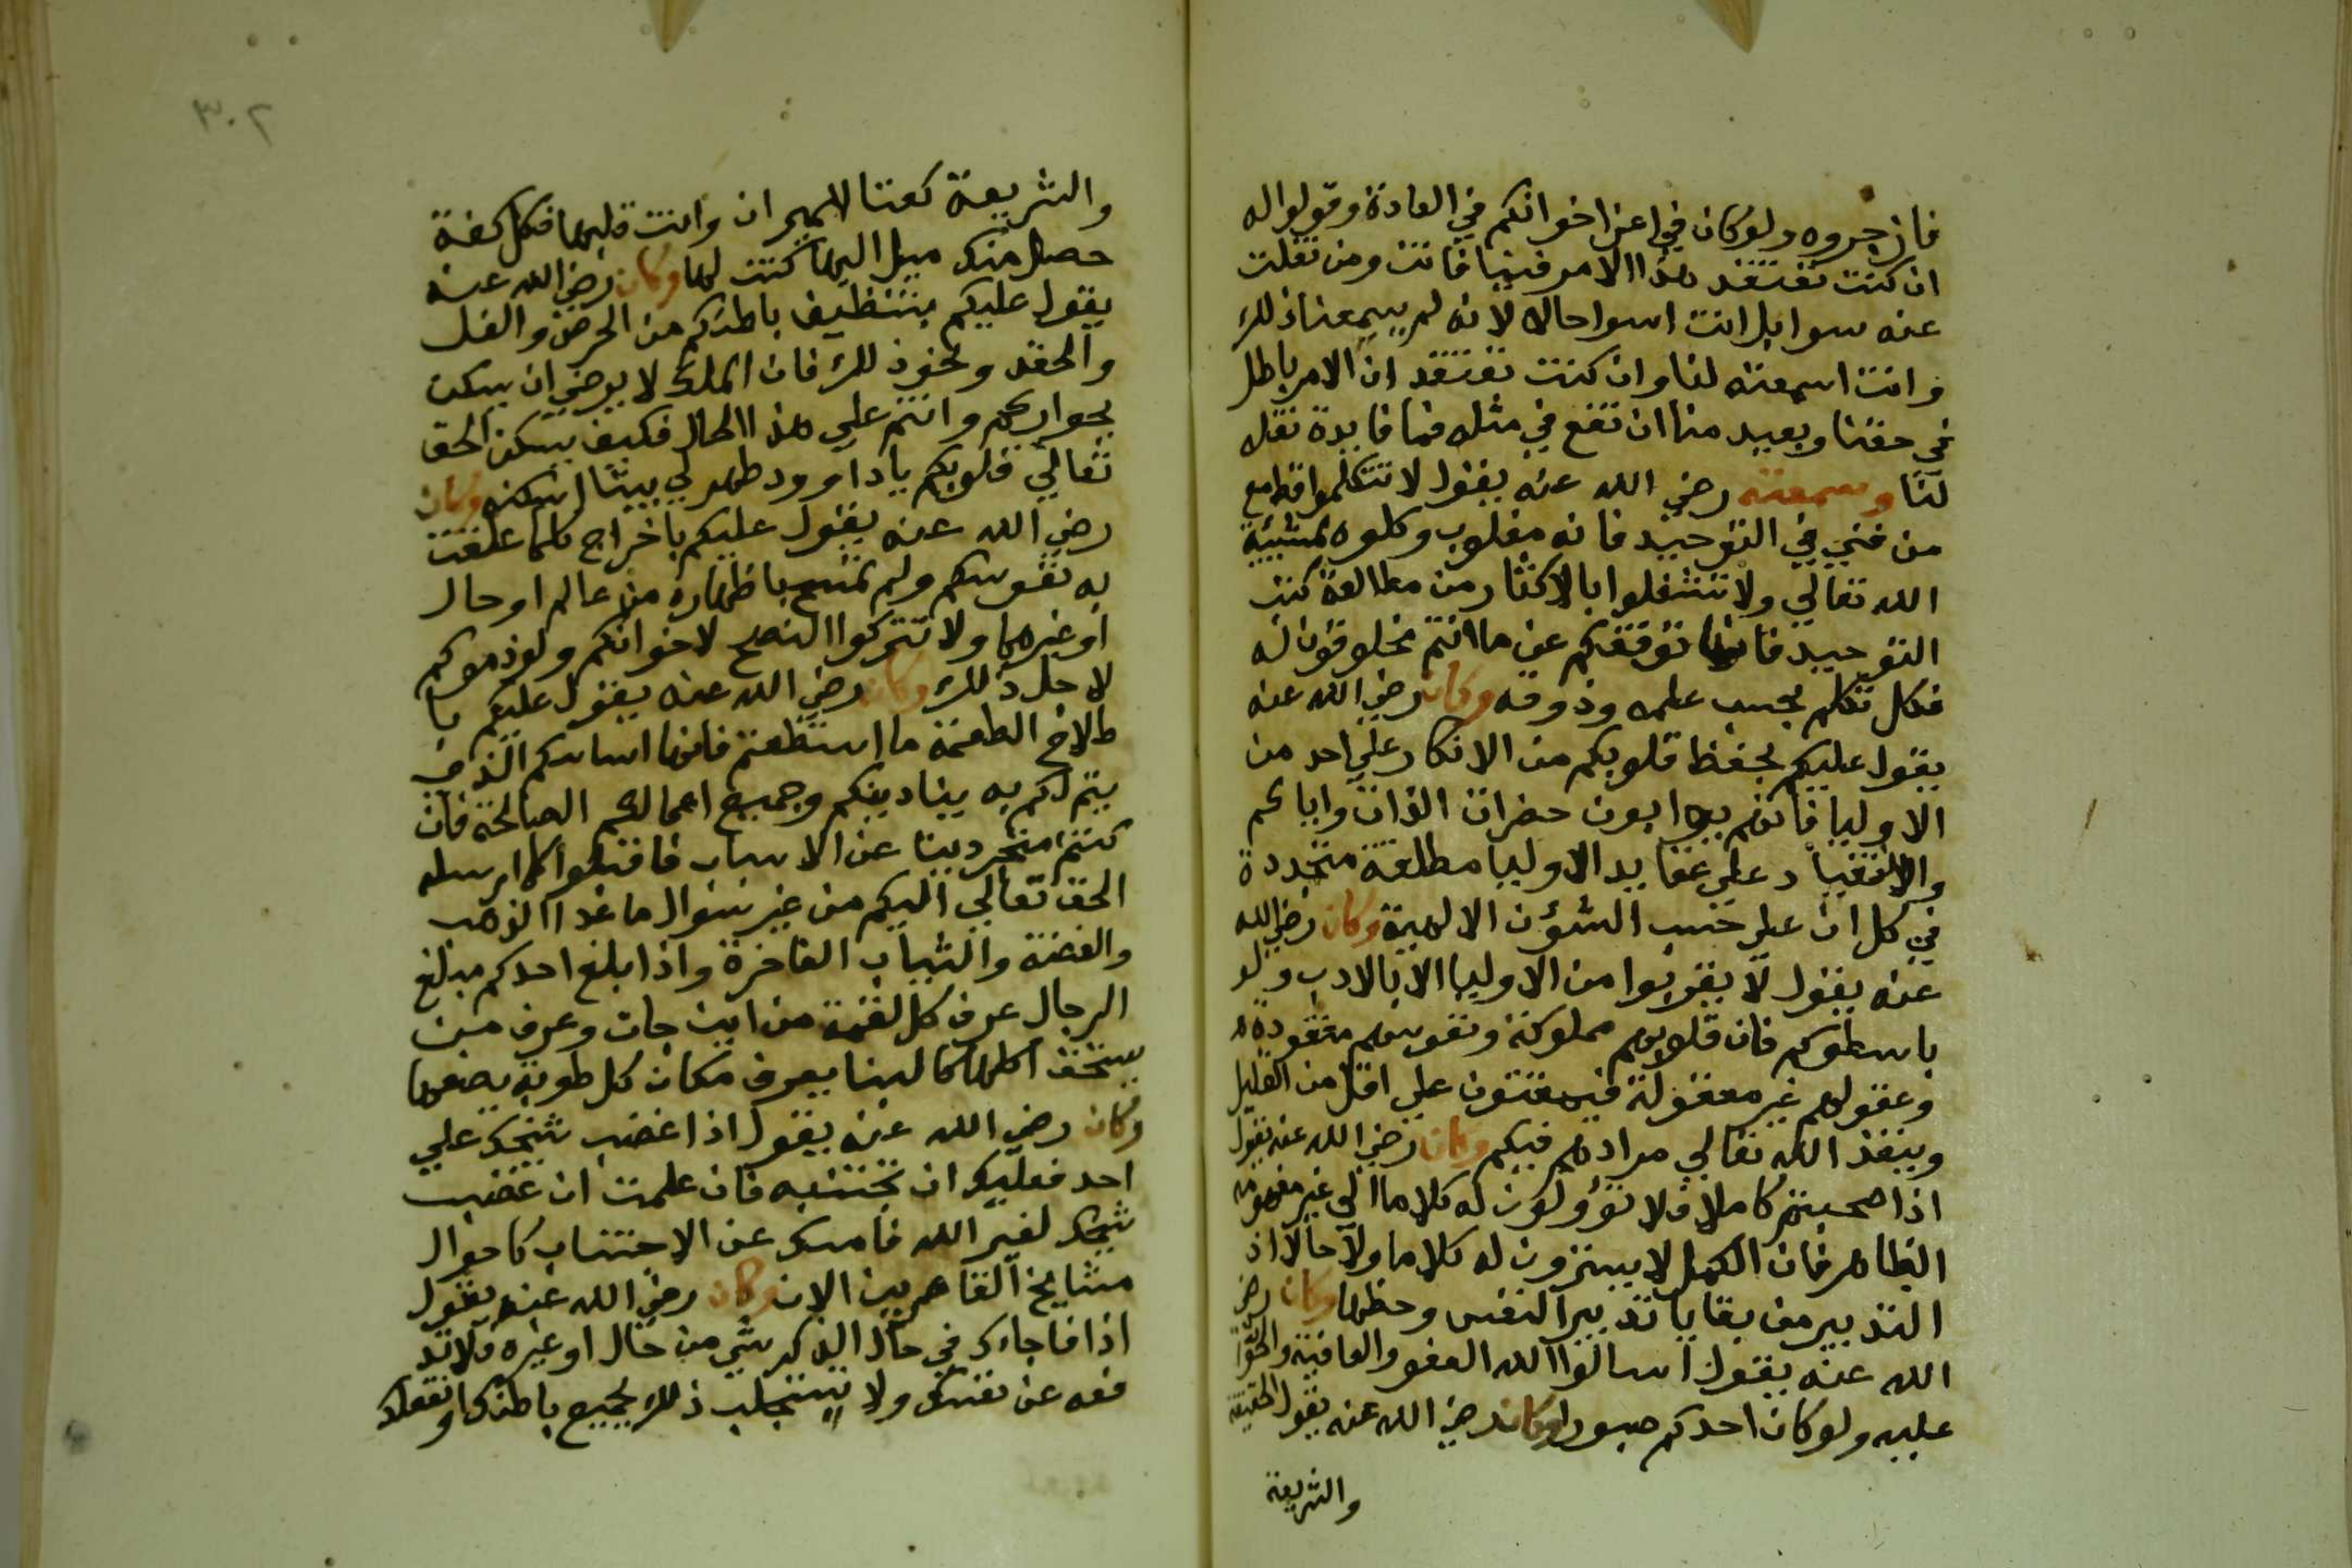 فازجروه ولو كان في اعز اخوانكم في العادة وقولوا له
ان كنت تعتقد هذا الامر فينا فانت ومن نقلت
عنه سوا بل انت اسوا حالا لانه لم يسمعنا ذلك
وانت اسمعته لنا وان كنت تعتقد ان الامر باطل
في حقنا وبعيد منا ان نقع في مثله فما فايدة نقله
لنا وسمعته رضي الله عنه يقول لا تتكلموا قط مع
من فني في التوحيد فانه مغلوب وكلوه لمشيية
الله تعالي ولا تشتغلوا بالاكثار من مطالعة كتب
التوحيد فانها توقفكم عن ما انتم مخلوقون له
فكل تكلم بحسب علمه وذوقه وكان رضي الله عنه
يقول عليكم بحفظ قلوبكم من الانكار علي احد من
الاوليا فانهم بوابون حضرات الذات واياكم
والانتقاد علي عقايد الاوليا مطلقة متجددة
في كل ان علي حسب الشؤن الالهية وكان رضي الله
عنه يقول لا تقربوا من الاوليا الا بالادب ولو
باسطوكم فان قلوبهم مملوكة ونفوسهم مفقودة
وعقولهم غير معقولة فيمقتون علي اقل من القليل
وينفذ الله تعالي مرادهم فيكم وكان رضي الله عنه يقول
اذا صحبتم كاملا فلا تؤولون له كلاما الي غير مفهومه
الظاهر فان الكمل لا يسترون له كلاما ولا حالا اذ
التدبير من بقايا تدبير النفس وحظها وكان رضي
الله عنه يقول اسالوا الله العفو والعافية والحوا
عليه ولو كان احدكم صبورا وكان رضي الله عنه يقول الحقيقة
والشريعة
٣٠٢
والشريعة كفتا الميزان وانت قلبها فكل كفة
حصل منك ميل اليها كنت لها وكان رضي الله عنه
يقول عليكم بتنظيف باطنكم من الحرص والغل
والحقد ونحو ذلك فان الملك لا يرضي ان يسكن
بجواركم وانتم علي هذا الحال فكيف يسكن الحق
تعالي قلوبكم يا داوود طهر لي بيتا اسكنه وكان
رضي الله عنه يقول عليكم باخراج كلما علقت
به نفوسكم ولم تسمح باظهاره من عالم او حال
او غيرهما ولا تتركوا النصح لاخوانكم ولو ذموكم
لاجل ذلك وكان رضي الله عنه يقول عليكم با
صلاح الطعمة ما استطعتم فانها اساسكم الذي
يتم لكم به بنا دينكم وجميع اعمالكم الصالحة فان
كنتم متجردين عن الاسباب فاقبلوا كلما ارسله
الحق تعالي اليكم من غير سؤال ما عدا الذهب
والفضة والثياب الفاخرة واذا بلغ احدكم مبلغ
الرجال عرف كل لقمة من اين جات وعرف من
يستحق اكلها كالبنا يعرف مكان كل طوبة يضعها
وكان رضي الله عنه يقول اذا غضب شيخك علي
احد فعليك ان تجتنبه فان علمت ان غضب
شيخك لغير الله فامسك عن الاجتناب كاحوال
مشايخ القاهريين الان وكان رضي الله عنه يقول
اذا فاجاءك في حال الذكر شي من حال او غيره فلا تد
فعه عن نفسك ولا تستجلب ذلك بجميع باطنك وتفعلك